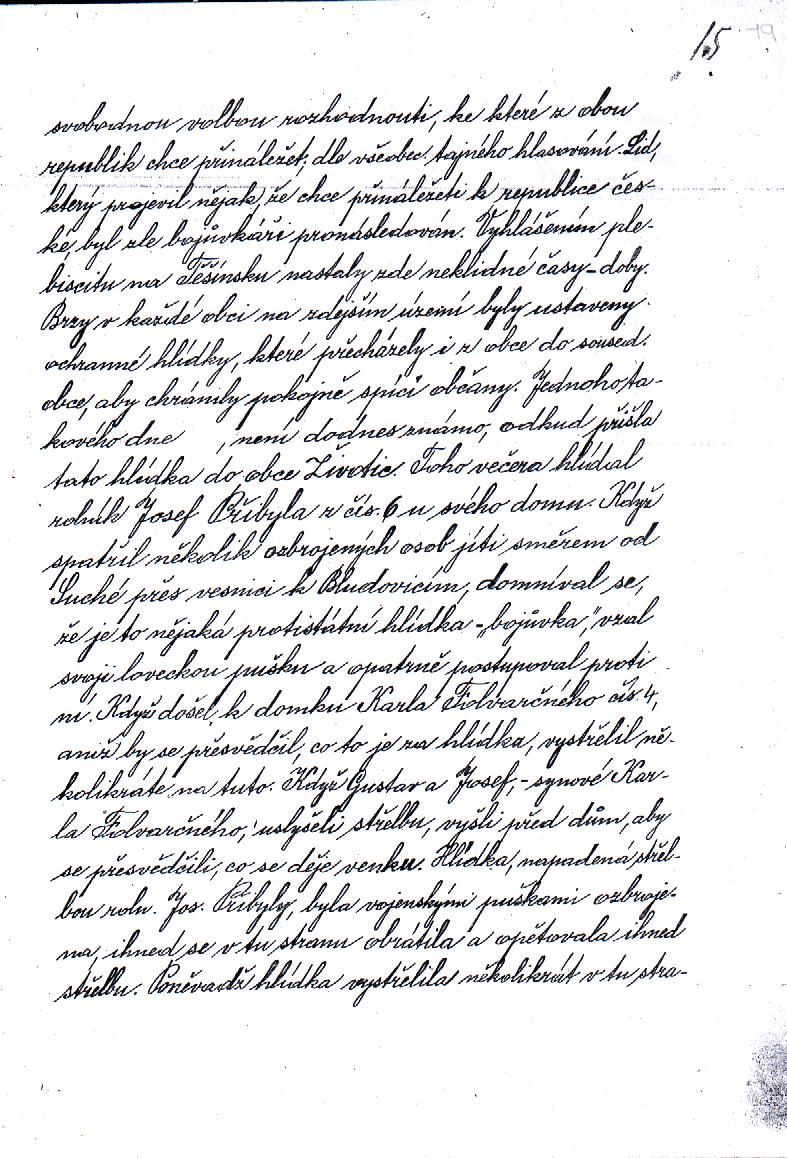 15 19
svobodnou volbou rozhodnouti, ke které z obou
republik chce přináležet, dle všeobec. tajného hlasování. Lid,
který projevil nějak, že chce přináležeti k republice čes-
ké, byl zle bojůvkáři pronásledován. Vyhlášením ple-
biscitu na Těšínsku nastaly zde neklidné časy – doby.
Brzy v každé obci na zdejším území byly ustaveny
ochranné hlídky, které přecházely i z obce do soused.
obce, aby chránily pokojně spící občany. Jednoho ta-
kového dne , není dodnes známo, odkud přišla
tato hlídka do obce Životic. Toho večera hlídal
rolník Josef Přibyla z čís. 6 u svého domu. Když
spatřil několik ozbrojených osob jíti směrem od
Suché přes vesnici k Bludovicím, domníval se,
že je to nějaká protistátní hlídka – „bojůvka," vzal
svoji loveckou pušku a opatrně postupoval proti
ní. Když došel k domku Karla Folvarčného čís. 4,
aniž by se přesvědčil, co to je za hlídka, vystřelil ně-
kolikráte na tuto. Když Gustav a Josef, – synové Kar-
la Folvarčného, uslyšeli střelbu, vyšli před dům, aby
se přesvědčili, co se děje venku. Hlídka, napadená střel-
bou roln. Jos. Přibyly, byla vojenskými puškami ozbroje-
na, ihned se v tu stranu obrátila a opětovala ihned
střelbu. Poněvadž hlídka vystřelila několikrát v tu stra-